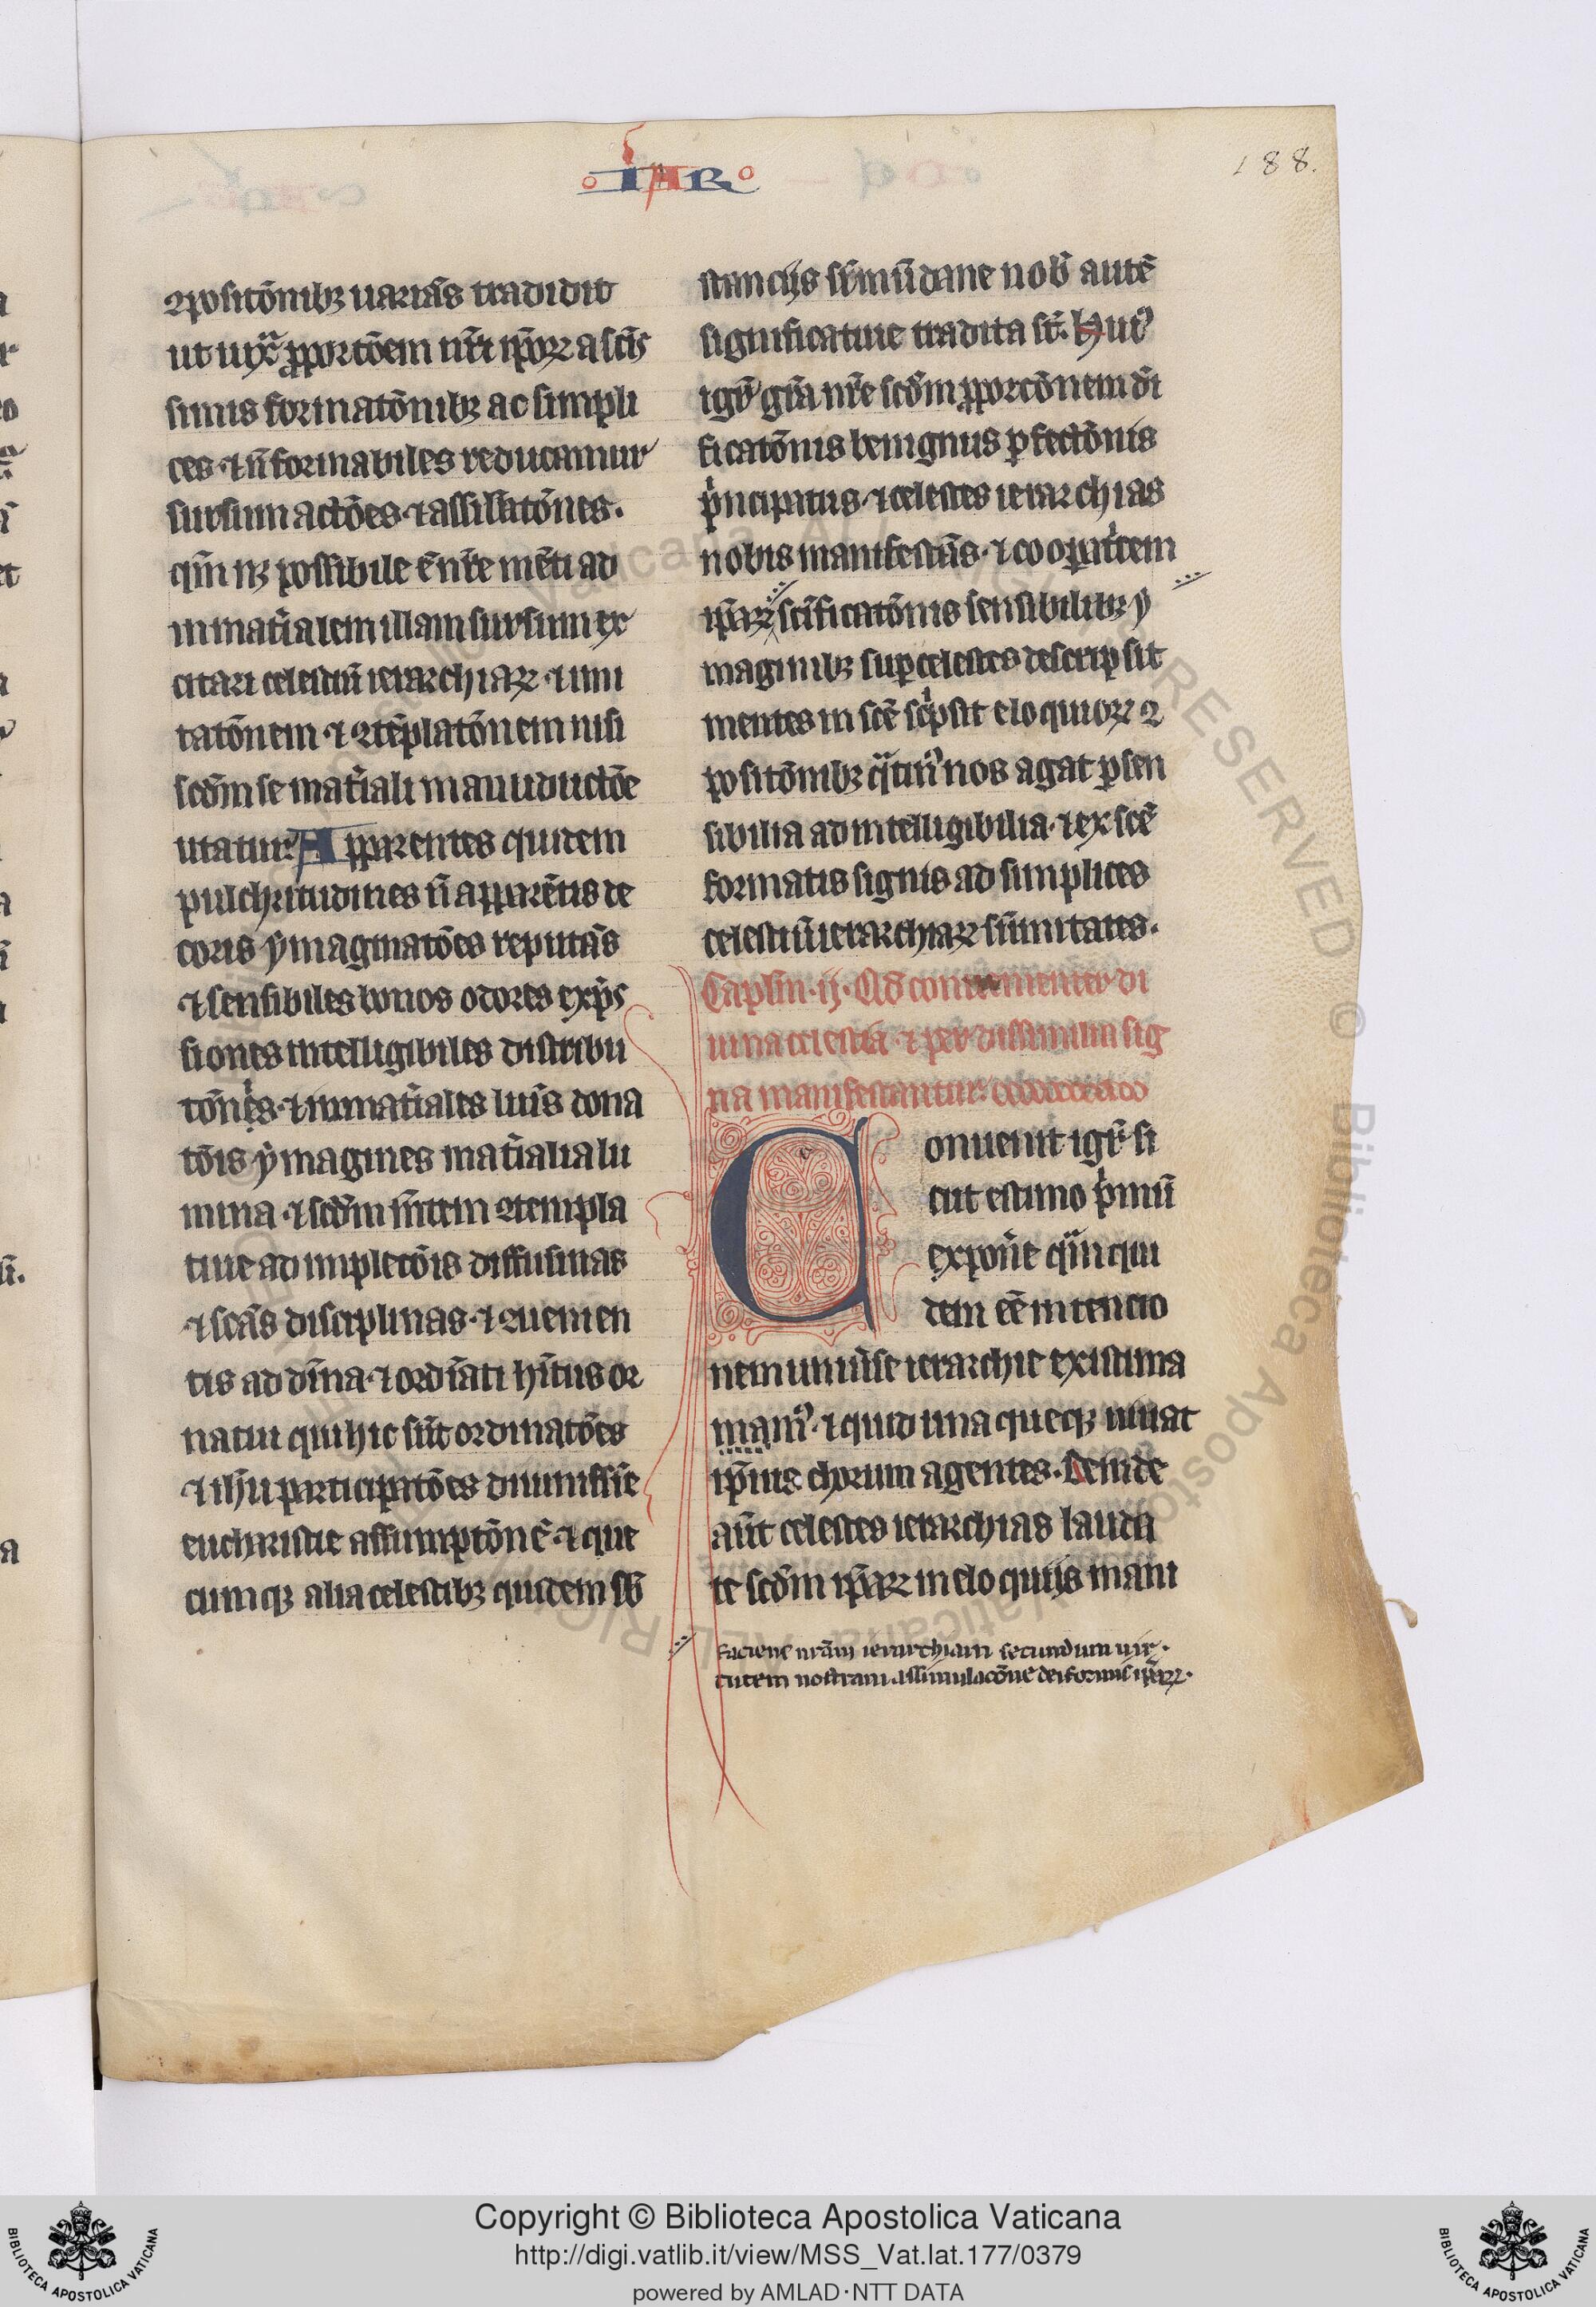 IAR
188.
ꝯpositōnibꝫ uarias tradidit
ut iuxͣ ꝓportōem nr̄i ip̄oꝝ a scīs
simis formatōnibꝫ ac simpli
ces ⁊ n̄ formabiles reducamur
sursum actōes ⁊ assil̄atōnes.
qm̄ nꝫ possibile ē nr̄e mēti ad
inmat̄ialem illam sursum ex
citari celestiū ierarchiaꝝ ⁊ imi
tatōnem ⁊ ꝯtēplatōnem nisi
scd̄m se mat̄iali manuductōe
utatur Apparentes quidem
pulchritudines n̄ apparētis de
coris ymaginatōes reputās
⁊ sensibiles bonos odores exp̄s
siones intelligibiles distribu
tōnis ⁊ inmat̄iales lu⁠īs dona
tōis ymagines mat̄ialia lu
mina ⁊ scd̄m m̄tem ꝯtempla
tiue adimpletōis diffusiuas
⁊ scās disciplinas ⁊ ꝯuenien
tis ad dīna ⁊ ordīati hītus or
natui qui hic sūt ordinatōes
⁊ ih̄u participatōes diuinissīe
euchristie assumptōnē ⁊ que
cumqꝫ alia celestibꝫ quidem sb̄
stancijs sr̄mūdane nob̄ autē
significatiue tradita st̄. Huiꝰ
igr̄ gr̄a nr̄e scd̄m ꝓporcōnem dī
ficatōnis benignus ꝑfectōnis
pͥncipatus ⁊ celestes ierarchias
nobis manifestās ⁊ cooꝑatͥcem
ip̄aꝝ scīficatōnis sensibilibꝫ y
maginibꝫ suꝑcelestes descripsit
mentes in scē scͥpsit eloquioꝝ ꝯ
positōnibꝫ qͣtinꝰ nos agat ꝑ sen
sibilia ad intelligibilia ⁊ ex scē
formatis signis ad simplices
celestiū ierarchiaꝝ sūmitates.
Caplm .ij. Qd̄ conuenienter di
uina celestia ⁊ per dissimilia sig
na manifestantur.
Conuenit igr̄ si
cut estimo pͥmū
expon̄e qͣm qui
dem eē intencio
nem uniūse ierarchie existima
mamꝰ ⁊ quid una queqꝫ iuuat
ip̄ius chorum agentes. Deinde
aūt celestes ierarchias lauda
re scd̄m ip̄aꝝ in eloquijs mani
faciens nrām ierarchiam secundum uir.
tutem nostram assimulacōne deiformis ip̄aꝝ.
Copyright © Biblioteca Apostolica Vaticana
http://digi.vatlib.it/view/MSS_Vat.lat.177/0379
powered by AMLAD·NTT DATA
BIBLIOTECA APOSTOLICA VATICANA
BIBLIOTECA APOSTOLICA VATICANA